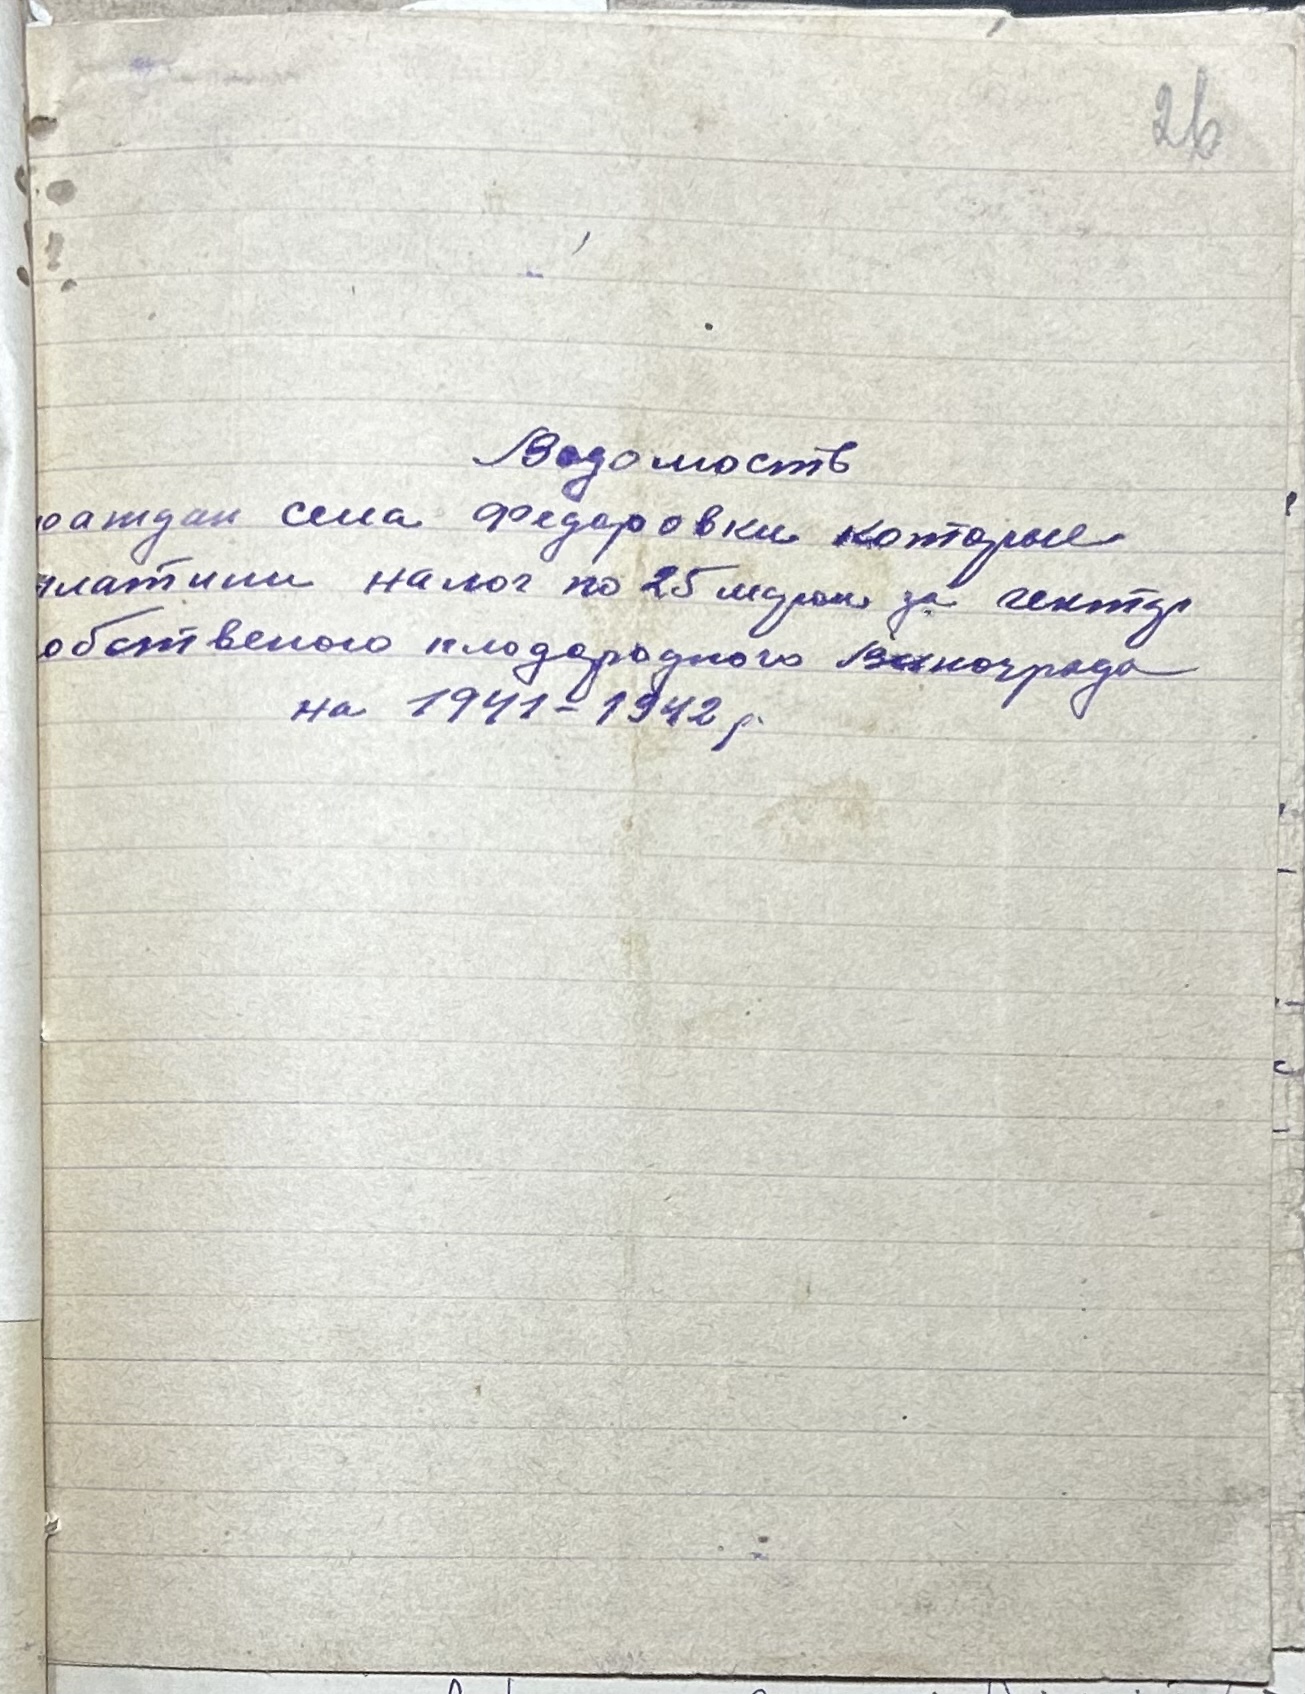 26
Ведомость
раждан села Федоровки которые
платили налог по 25 марок за гектар
обственого плодородного Винограда
на 1941-1942 г.